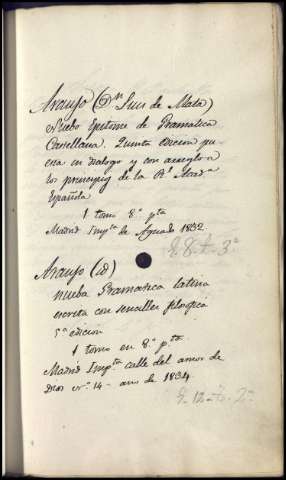 Araujo (Dn Luis de Mata)
Nuebo Epitome de Gramatica
Castellana. Quinta edicion pu
esta en dialogo y con arreglo a
los principios de la Rl Acada
Española
1 tomo 8º pta
Madrid Impta de Aguado 1832
E. 8. t. 3ª
Araujo (id)
nueba Gramatica latina
escrita con sencillez filosofica
5ª edicion
1 tomo en 8º pta
Madrid Impta calle del amor de
Dios nº 14 - año de 1834